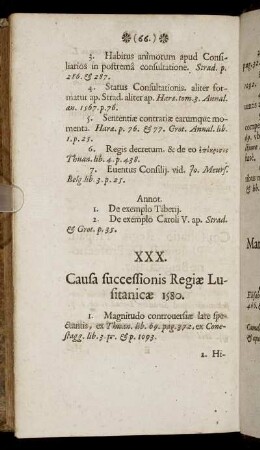 (66.)
3. Habitus animorum apud Consi-
liarios in postrema consultatione. Strad. p.
286. & 287.
4. Status Consultationis aliter for-
matus ap. Strad. aliter ap. Haræ. tom. 3. Annal.
an. 1567. p. 76.
5. Sententiæ contrariæ earumque mo-
menta. Haræ. p. 76. & 77. Grot. Annal. lib.
1. p. 25.
6. Regis decretum. & de eo
Thuan. lib. 4. p. 438.
7. Euentus Consilij. vid. Jo. Meurs.
Belg lib. 3. p. 25.
Annot.
1. De exemplo Tiberij.
2. De exemplo Caroli V. ap. Strad.
& Grot. p. 35.
XXX.
Causa successionis Regiæ Lu-
sitanicæ 1580.
1. Magnitudo controuersiæ late spe-
ctantis, ex Thuan. lib. 69. pag. 372. ex Cone-
stagg. lib. 3. pr. & p. 1093.
2. Hi-